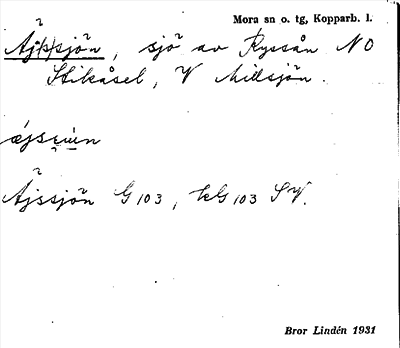 Mora sn o. tg, Kopparb. l.
Åj(s)sjön, sjö av Ryssån NO
Stikåsel, V Millsjön.
Åjssjön G 103, kG 103 SV.
Bror Lindén 1931